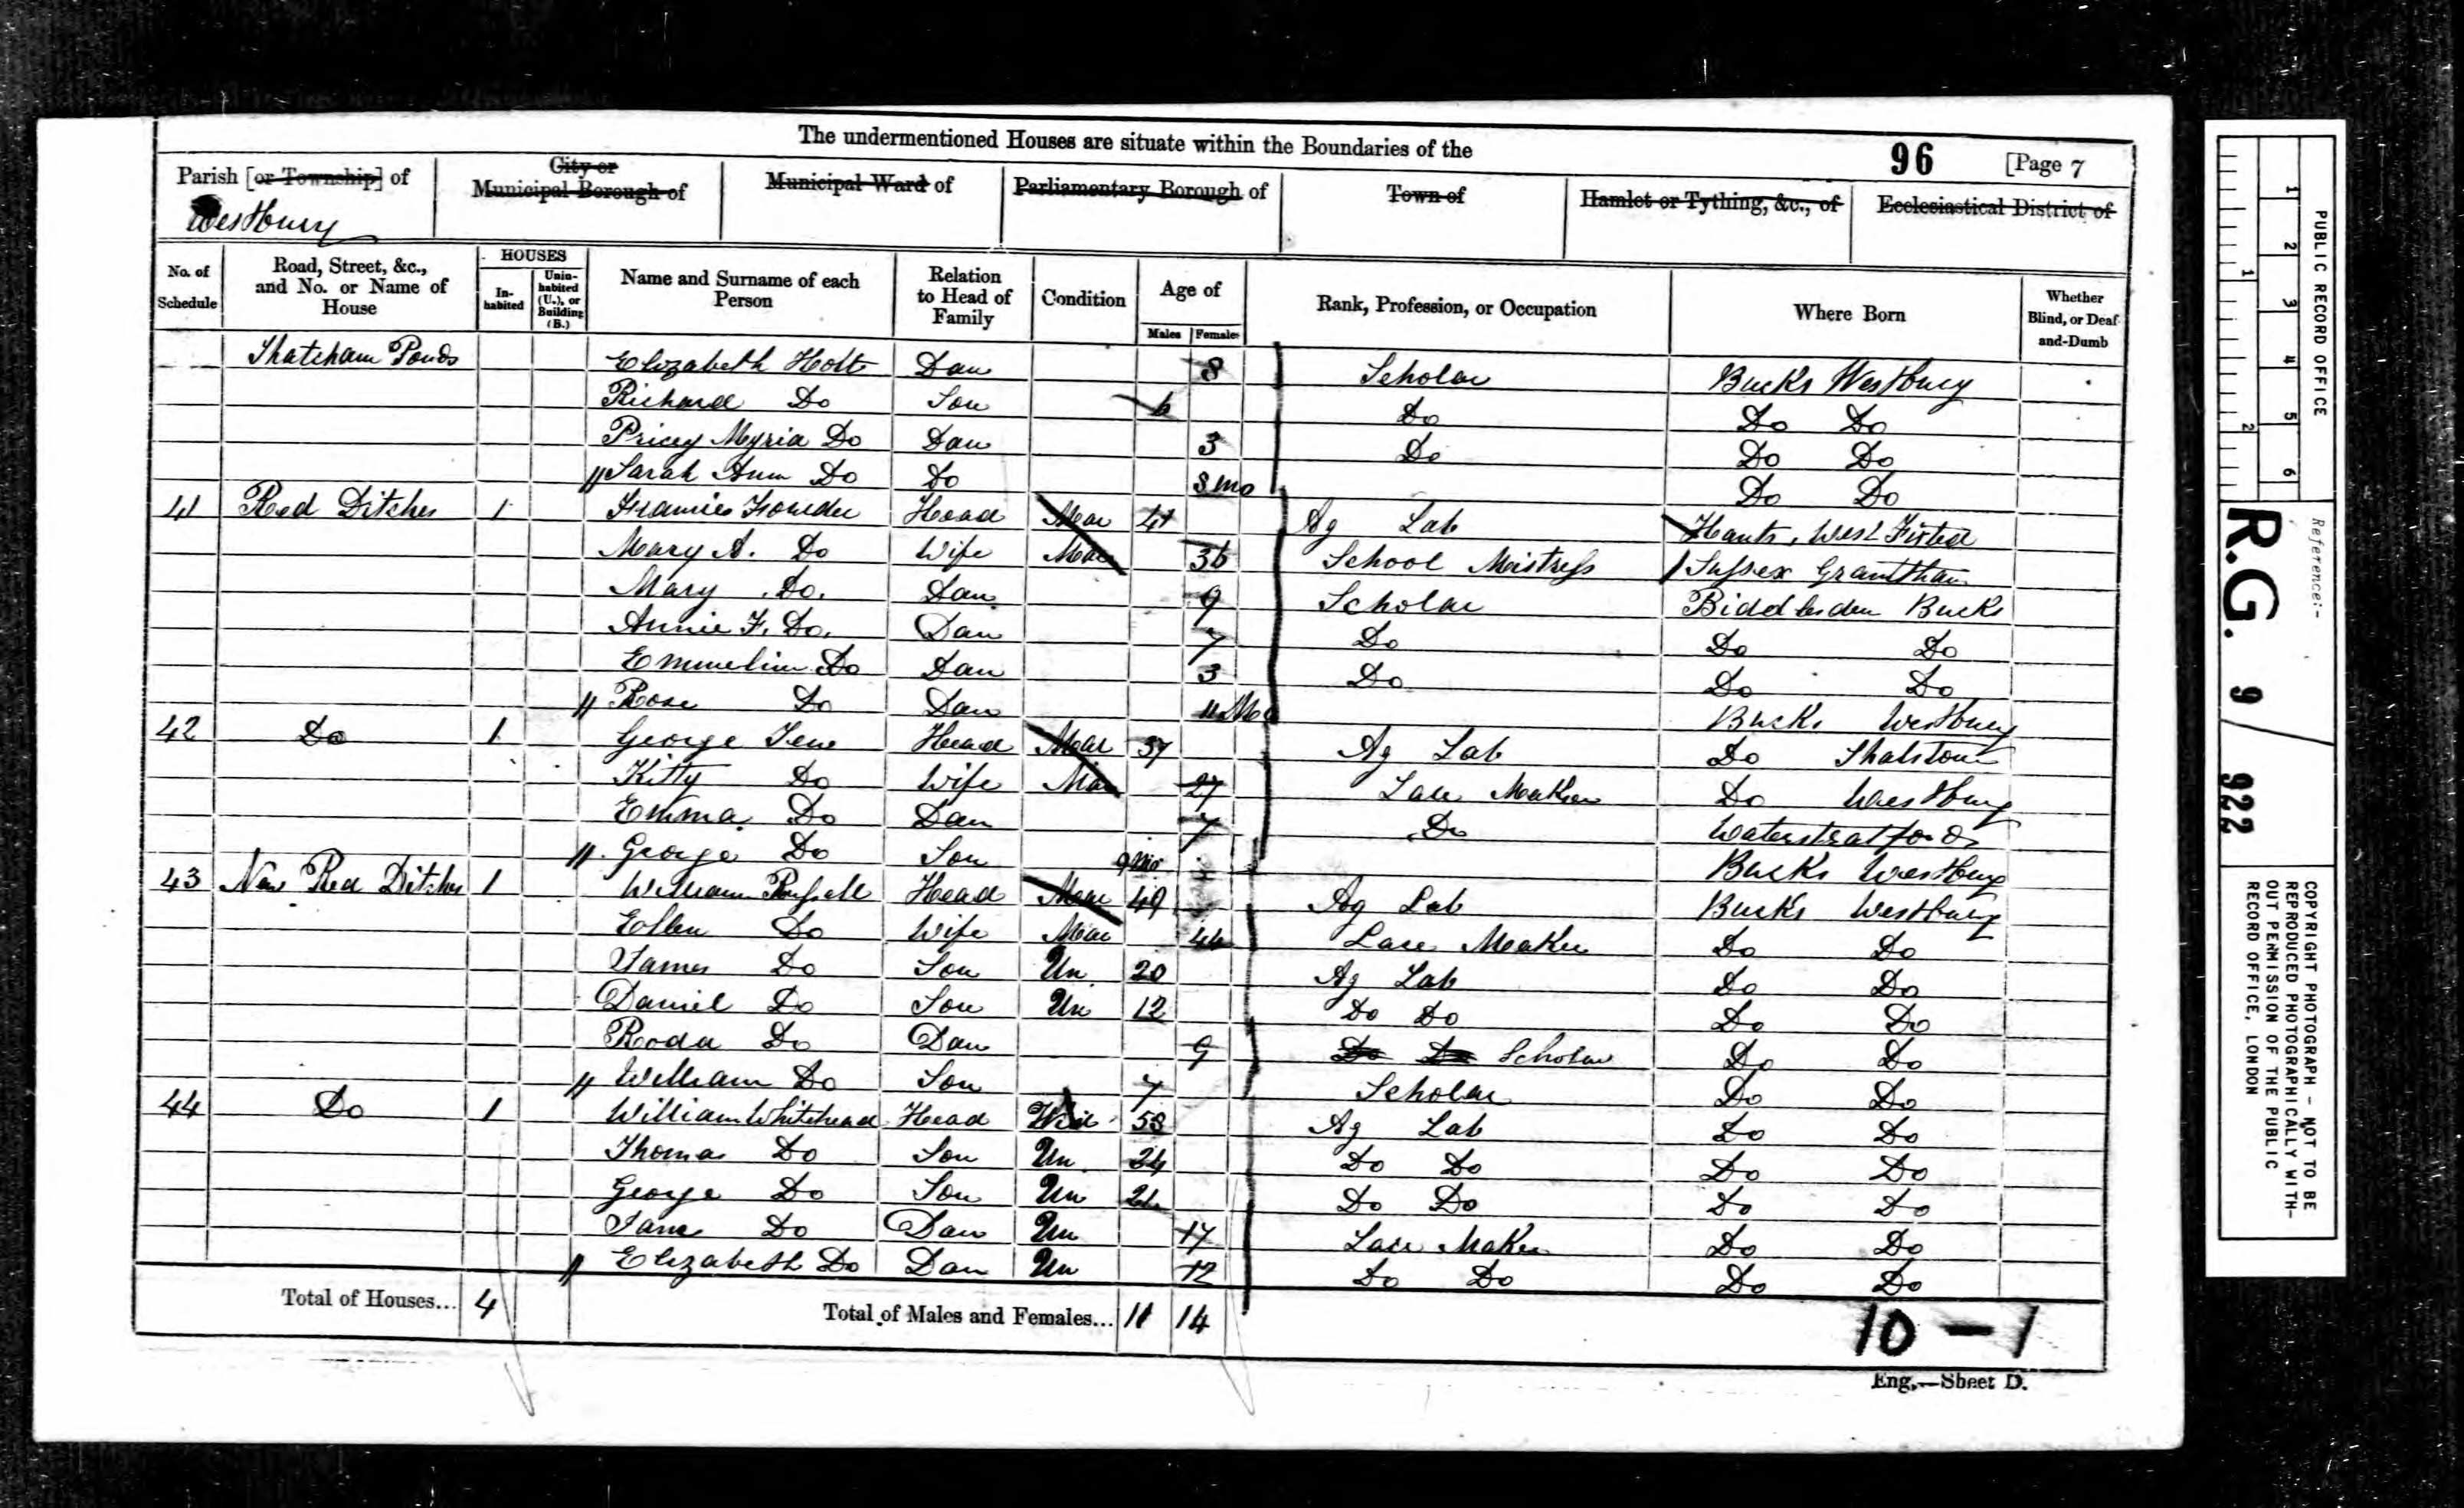 The undermentioned Houses are situate within the Boundaries of the
96 [Page 7
Parish [or Township] of Westbury
City or Municipal Borough of
Municipal Ward of
Parliamentary Borough of
Town of
Hamlet or Tything, &c., of
Ecclesiastical District of
No. of Schedule
Road, Street, &c., and No. or Name of House
HOUSES
In-habited
Unin-habited (U.), or Building (B.)
Name and Surname of each Person
Relation to Head of Family
Condition
Age of
Males Females
Rank, Profession, or Occupation
Where Born
Whether Blind, or Deaf-and-Dumb
Ponds Elizabeth Holt Dau 8 Scholar Bucks Westbury
Richard Do Son 6 Do Do Do
Do Dau 3 Do Do Do
Sarah Ann Do Do 8 mo Do Do
41 Red Ditches 1 Head Mar 41 Ag Lab Hants, West
Mary A. Do Wife Mar 36 School Mistress Sussex
Mary Do. Dau 9 Scholar Biddlesden Bucks
Annie F. Do. Dau 7 Do Do Do
Emmeline Do Dau 3 Do Do Do
Rose Do Dau 11 Mo Bucks Westbury
42 Do 1 George Head Mar 37 Ag Lab Do Shalstone
Kitty Do Wife Mar 27 Lace Maker Do Westbury
Emma Do Dau 7 Do Waterstratford
George Do Son 9 Mo Bucks Westbury
43 New Red Ditches 1 William Russell Head Mar 49 Ag Lab Bucks Westbury
Ellen Do Wife Mar 44 Lace Maker Do Do
James Do Son Un 20 Ag Lab Do Do
Daniel Do Son Un 12 Do Do Do Do
Roda Do Dau 9 Do Do Scholar Do Do
William Do Son 7 Scholar Do Do
44 Do 1 William Whitehead Head Wid 53 Ag Lab Do Do
Thomas Do Son Un 24 Do Do Do Do
George Do Son Un Do Do Do Do
Jane Do Dau Un 17 Lace Maker Do Do
Elizabeth Do Dau Un 12 Do Do Do Do
Total of Houses... 4
Total of Males and Females... 11 14
10 - 1
Eng.—Sheet D.
PUBLIC RECORD OFFICE
1 2 3 4 5 6
1 2
Reference:-
R.G. 9 / 922
COPYRIGHT PHOTOGRAPH - NOT TO BE
REPRODUCED PHOTOGRAPHICALLY WITH-
OUT PERMISSION OF THE PUBLIC
RECORD OFFICE, LONDON